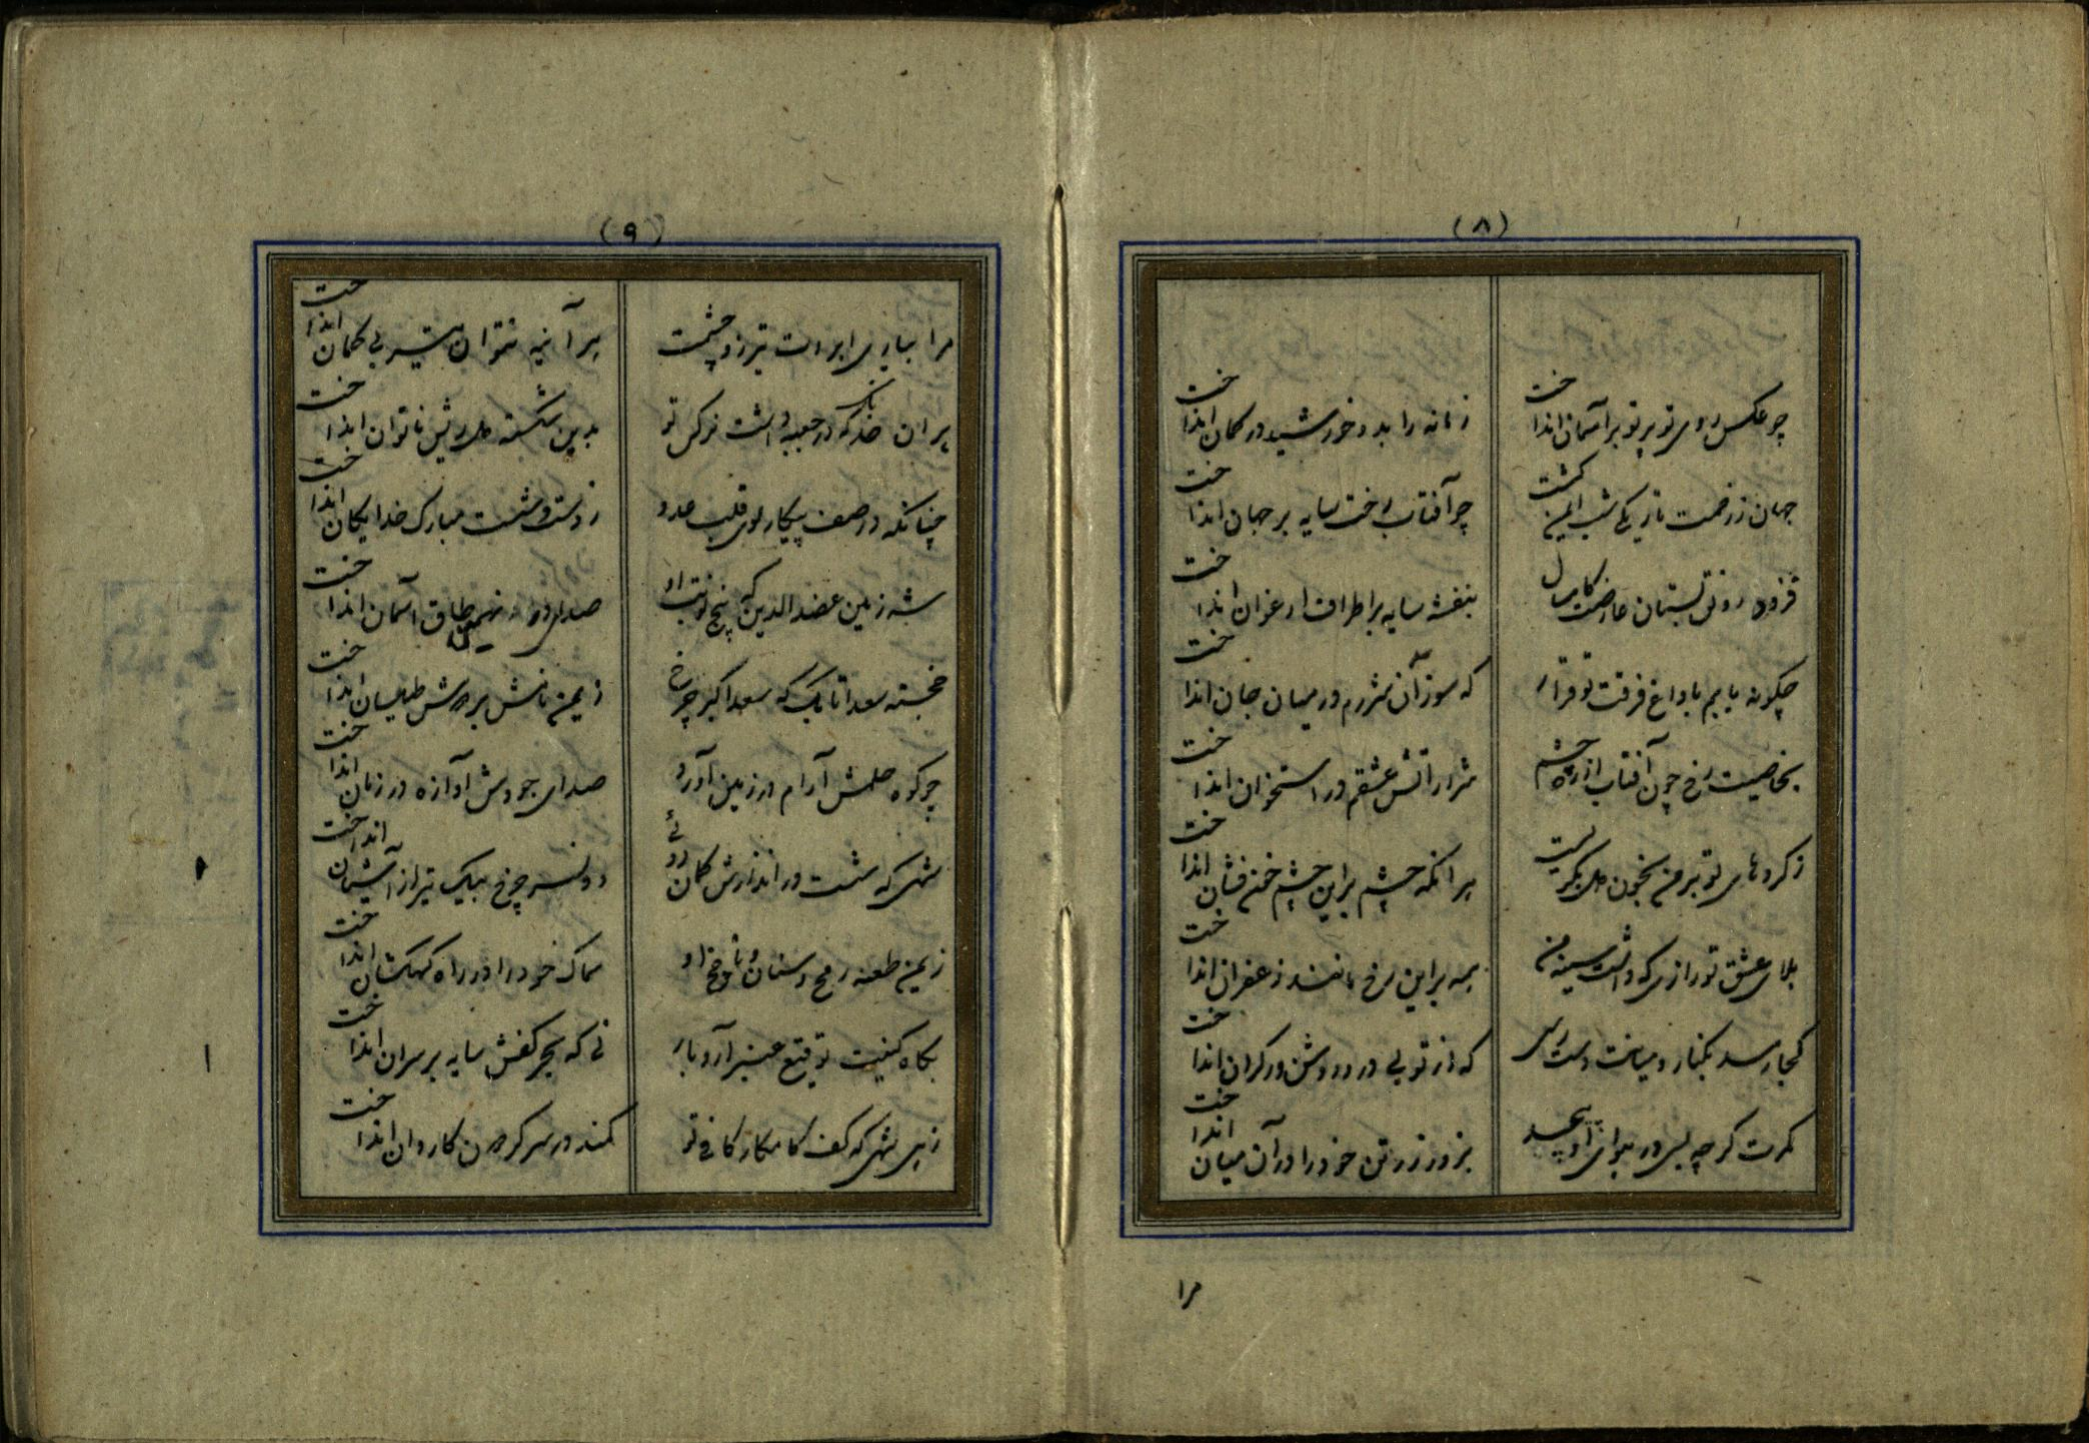 (۸)
چو عکس روی تو پرتو بر آسمان انداخت
زمانه را بدو خورشید در کمان انداخت
جهان ز زحمت تاریکی شب ایمن گشت
چو آفتاب رخت سایه بر جهان انداخت
فزود رونق بستان عارضت کامسال
بنفشه سایه بر اطراف ارغوان انداخت
چگونه یابم با داغ فرقت تو قرار
که سوز آن شررم در میان جان انداخت
بخاصیت رخ چون آفتاب از ره چشم
شرار آتش عشقم در استخوان انداخت
ز کردهای تو بر من بخون دل بگریست
هر آنکه چشم بر این چشم خون فشان انداخت
بلای عشق تو رازی که داشت سینه من
همه بر این رخ مانند زعفران انداخت
کجا رسد بکنار و میانت دست رسی
که از تو بی در و دروشن در کران انداخت
کمرت گرچه بسی در هوای او پیچید
بزور زر تن خود را در آن میان انداخت
مرا
(۹)
مرا بیاری ابروت تیر زد چشمت
هر آینه نتوان تیر بی کمان انداخت
هر آن خدنگ که در جعبه داشت نرگس تو
بدین شکسته دل ریش ناتوان انداخت
چنانکه در صف پیکار سوی قلب عدو
ز دست و شست مبارک خدایگان انداخت
شه زمین عضد الدین که پنج نوبت او
صدای در نهمین طاق آسمان انداخت
خجسته سعد اتابک که سعد اکبر چرخ
ز یمن نامش بر دوش طیلسان انداخت
چو کوه حلمش آرام در زمین آورد
صدای جودش آوازه در زمان انداخت
شهی که شست در اندازش کمان روئی
دو نسر چرخ بیک تیر از آشیان انداخت
ز یمن طعنه رمح و سنان و ناچخ او
سماک خود را در راه کهکشان انداخت
بگاه کتبت توقیع عنبر آرد بار
نی که بحر کفش سایه بر سر آن انداخت
زهی شهی که کف کامکار کافی تو
کمند در سر گردون کاروان انداخت